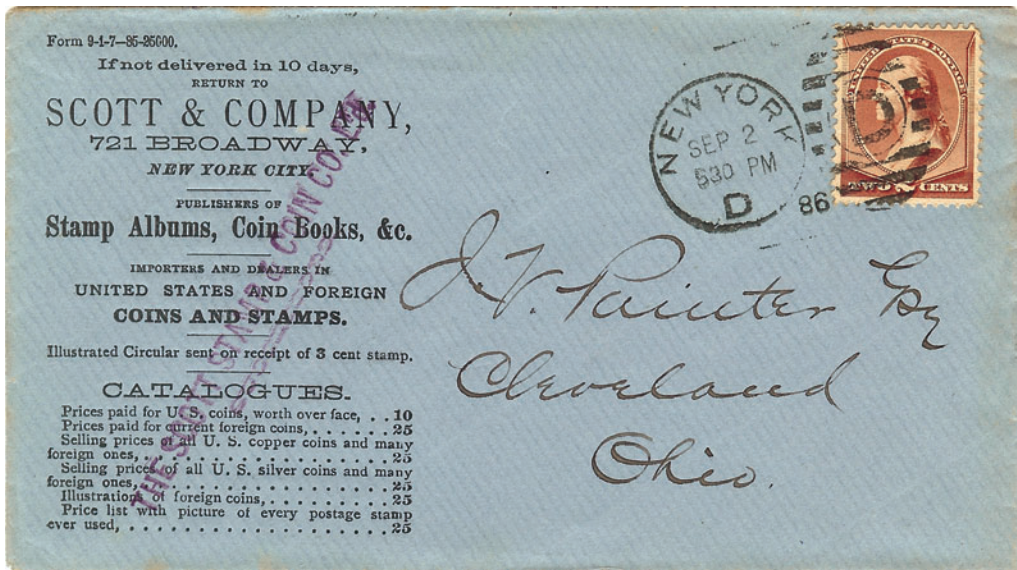 Form 9-1-7—85-25000.
If not delivered in 10 days,
RETURN TO
SCOTT & COMPANY,
721 BROADWAY,
NEW YORK CITY.
PUBLISHERS OF
Stamp Albums, Coin Books, &c.
IMPORTERS AND DEALERS IN
UNITED STATES AND FOREIGN
COINS AND STAMPS.
Illustrated Circular sent on receipt of 3 cent stamp.
CATALOGUES.
Prices paid for U. S. coins, worth over face, . . 10
Prices paid for current foreign coins, . . . . . . . 25
Selling prices of all U. S. copper coins and many
foreign ones, . . . . . . . . . . . . . . . . . . . 25
Selling prices of all U. S. silver coins and many
foreign ones, . . . . . . . . . . . . . . . . . . . 25
Illustrations of foreign coins, . . . . . . . . . . 25
Price list with picture of every postage stamp
ever used, . . . . . . . . . . . . . . . . . . . . 25
THE SCOTT STAMP & COIN CO. L'M'T
NEW YORK
SEP 2
530 PM
D
86
D
UNITED STATES POSTAGE
TWO 2 CENTS
J. V. Painter Esq
Cleveland
Ohio.